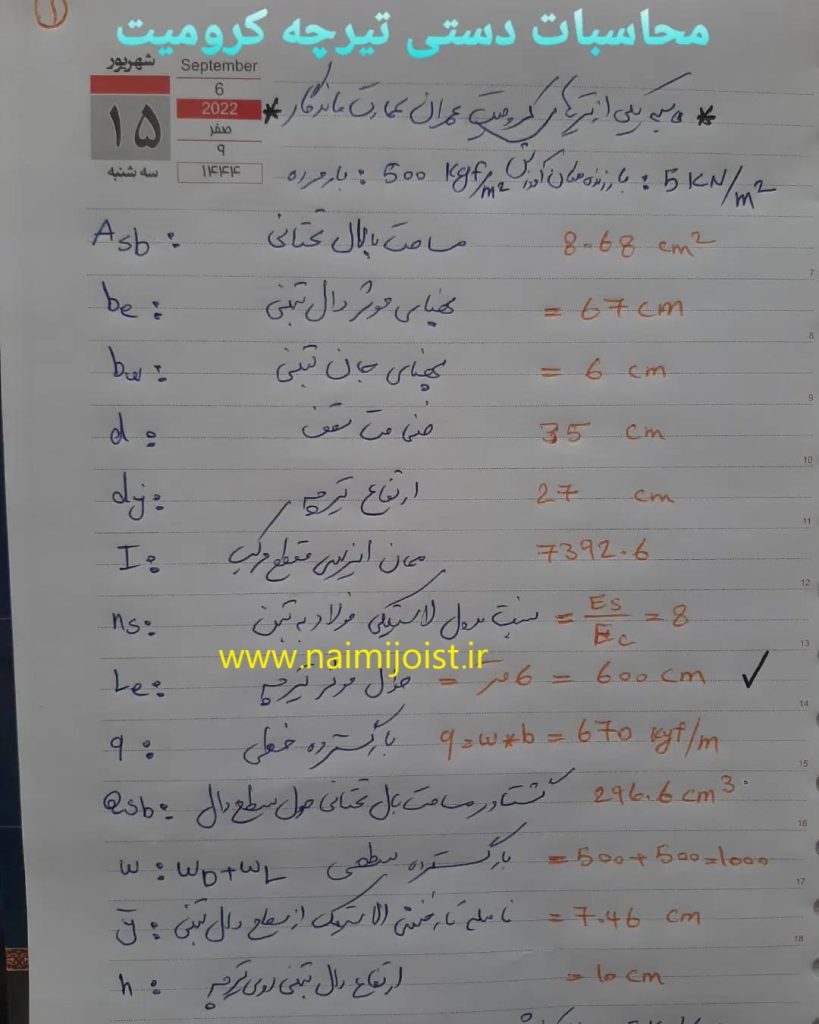 محاسبات دستی تیرچه کرومیت
شهریور
September
6
2022
۱۵
صفر
۹
سه شنبه
۱۴۴۴
* یکی از کرومیت عمران عمارت ماندگار *
بار مرده : 500 Kgf/m² بار زنده : 5 KN/m²
Asb : مساحت بال تحتانی 8.68 cm²
7
be : پهنای موثر دال بتنی = 67 cm
8
bw : پهنای جان بتنی = 6 cm
9
d : ضخامت سقف 35 cm
10
dj : ارتفاع تیرچه 27 cm
11
I : ممان اینرسی مقطع مرکب 7392.6
12
ns : نسبت مدول الاستیک فولاد به بتن = Es/Ec = 8
13
www.naimijoist.ir
Le : طول موثر تیرچه = 6 متر = 600 cm ✓
14
q : بار گسترده خطی q=w*b = 670 kgf/m
15
asb : گشتاور مساحت بال تحتانی حول سطح دال 296.6 cm³
16
w : wD+wL بار گسترده سطحی = 500+500=1000
17
ȳ : فاصله تار خنثی الاستیک از سطح دال بتنی = 7.46 cm
18
h : ارتفاع دال بتنی روی تیرچه = 10 cm